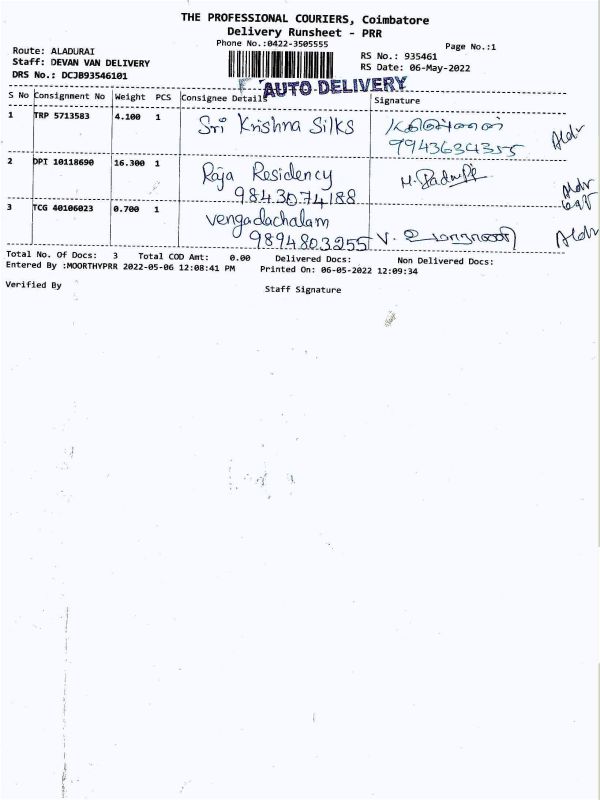 THE PROFESSIONAL COURIERS, Coimbatore
Delivery Runsheet - PRR
Phone No.:0422-3505555
Page No.:1
Route: ALADURAI
Staff: DEVAN VAN DELIVERY
RS No.: 935461
DRS No.: DCJB93546101
RS Date: 06-May-2022
AUTO DELIVERY
S No Consignment No Weight PCS Consignee Details Signature
1 TRP 5713583 4.100 1 Sri Krishna Silks
9943634355
2 DPI 10118690 16.300 1 Raja Residency
9843074188
3 TCG 40106023 0.700 1 Vengadachalam
9894803255 V.
Total No. Of Docs: 3 Total COD Amt: 0.00 Delivered Docs: Non Delivered Docs:
Entered By :MOORTHYPRR 2022-05-06 12:08:41 PM Printed On: 06-05-2022 12:09:34
Verified By Staff Signature